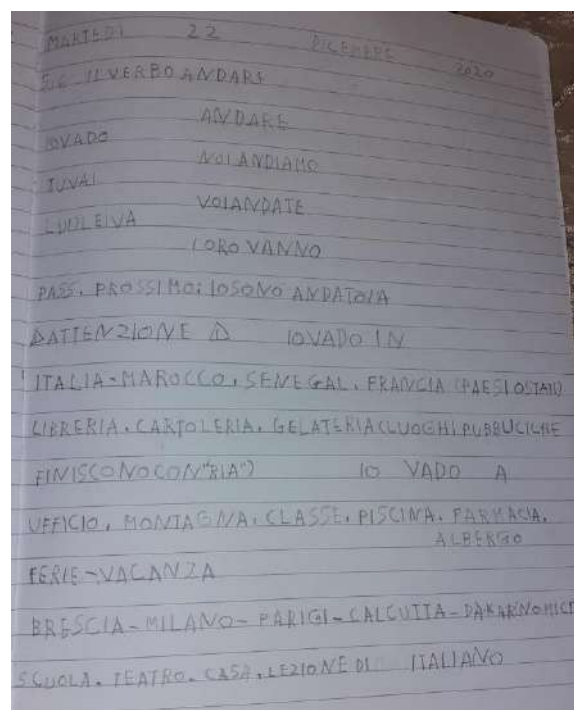 MARTEDÌ 22 DICEMBRE 2020
IL VERBO ANDARE
ANDARE
IO VADO
NOI ANDIAMO
TU VAI
VOI ANDATE
LUI/LEI VA
LORO VANNO
PASS. PROSSIMO: IO SONO ANDATO/A
ATTENZIONE IO VADO IN
ITALIA-MAROCCO, SENEGAL, FRANCIA (PAESI O STATI)
LIBRERIA, CARTOLERIA, GELATERIA (LUOGHI PUBBLICI CHE
FINISCONO CON "RIA") IO VADO A
UFFICIO, MONTAGNA, CLASSE, PISCINA, FARMACIA,
ALBERGO
FERIE-VACANZA
BRESCIA-MILANO-PARIGI-CALCUTTA-DAKAR
SCUOLA, TEATRO, CASA, LEZIONE DI ITALIANO